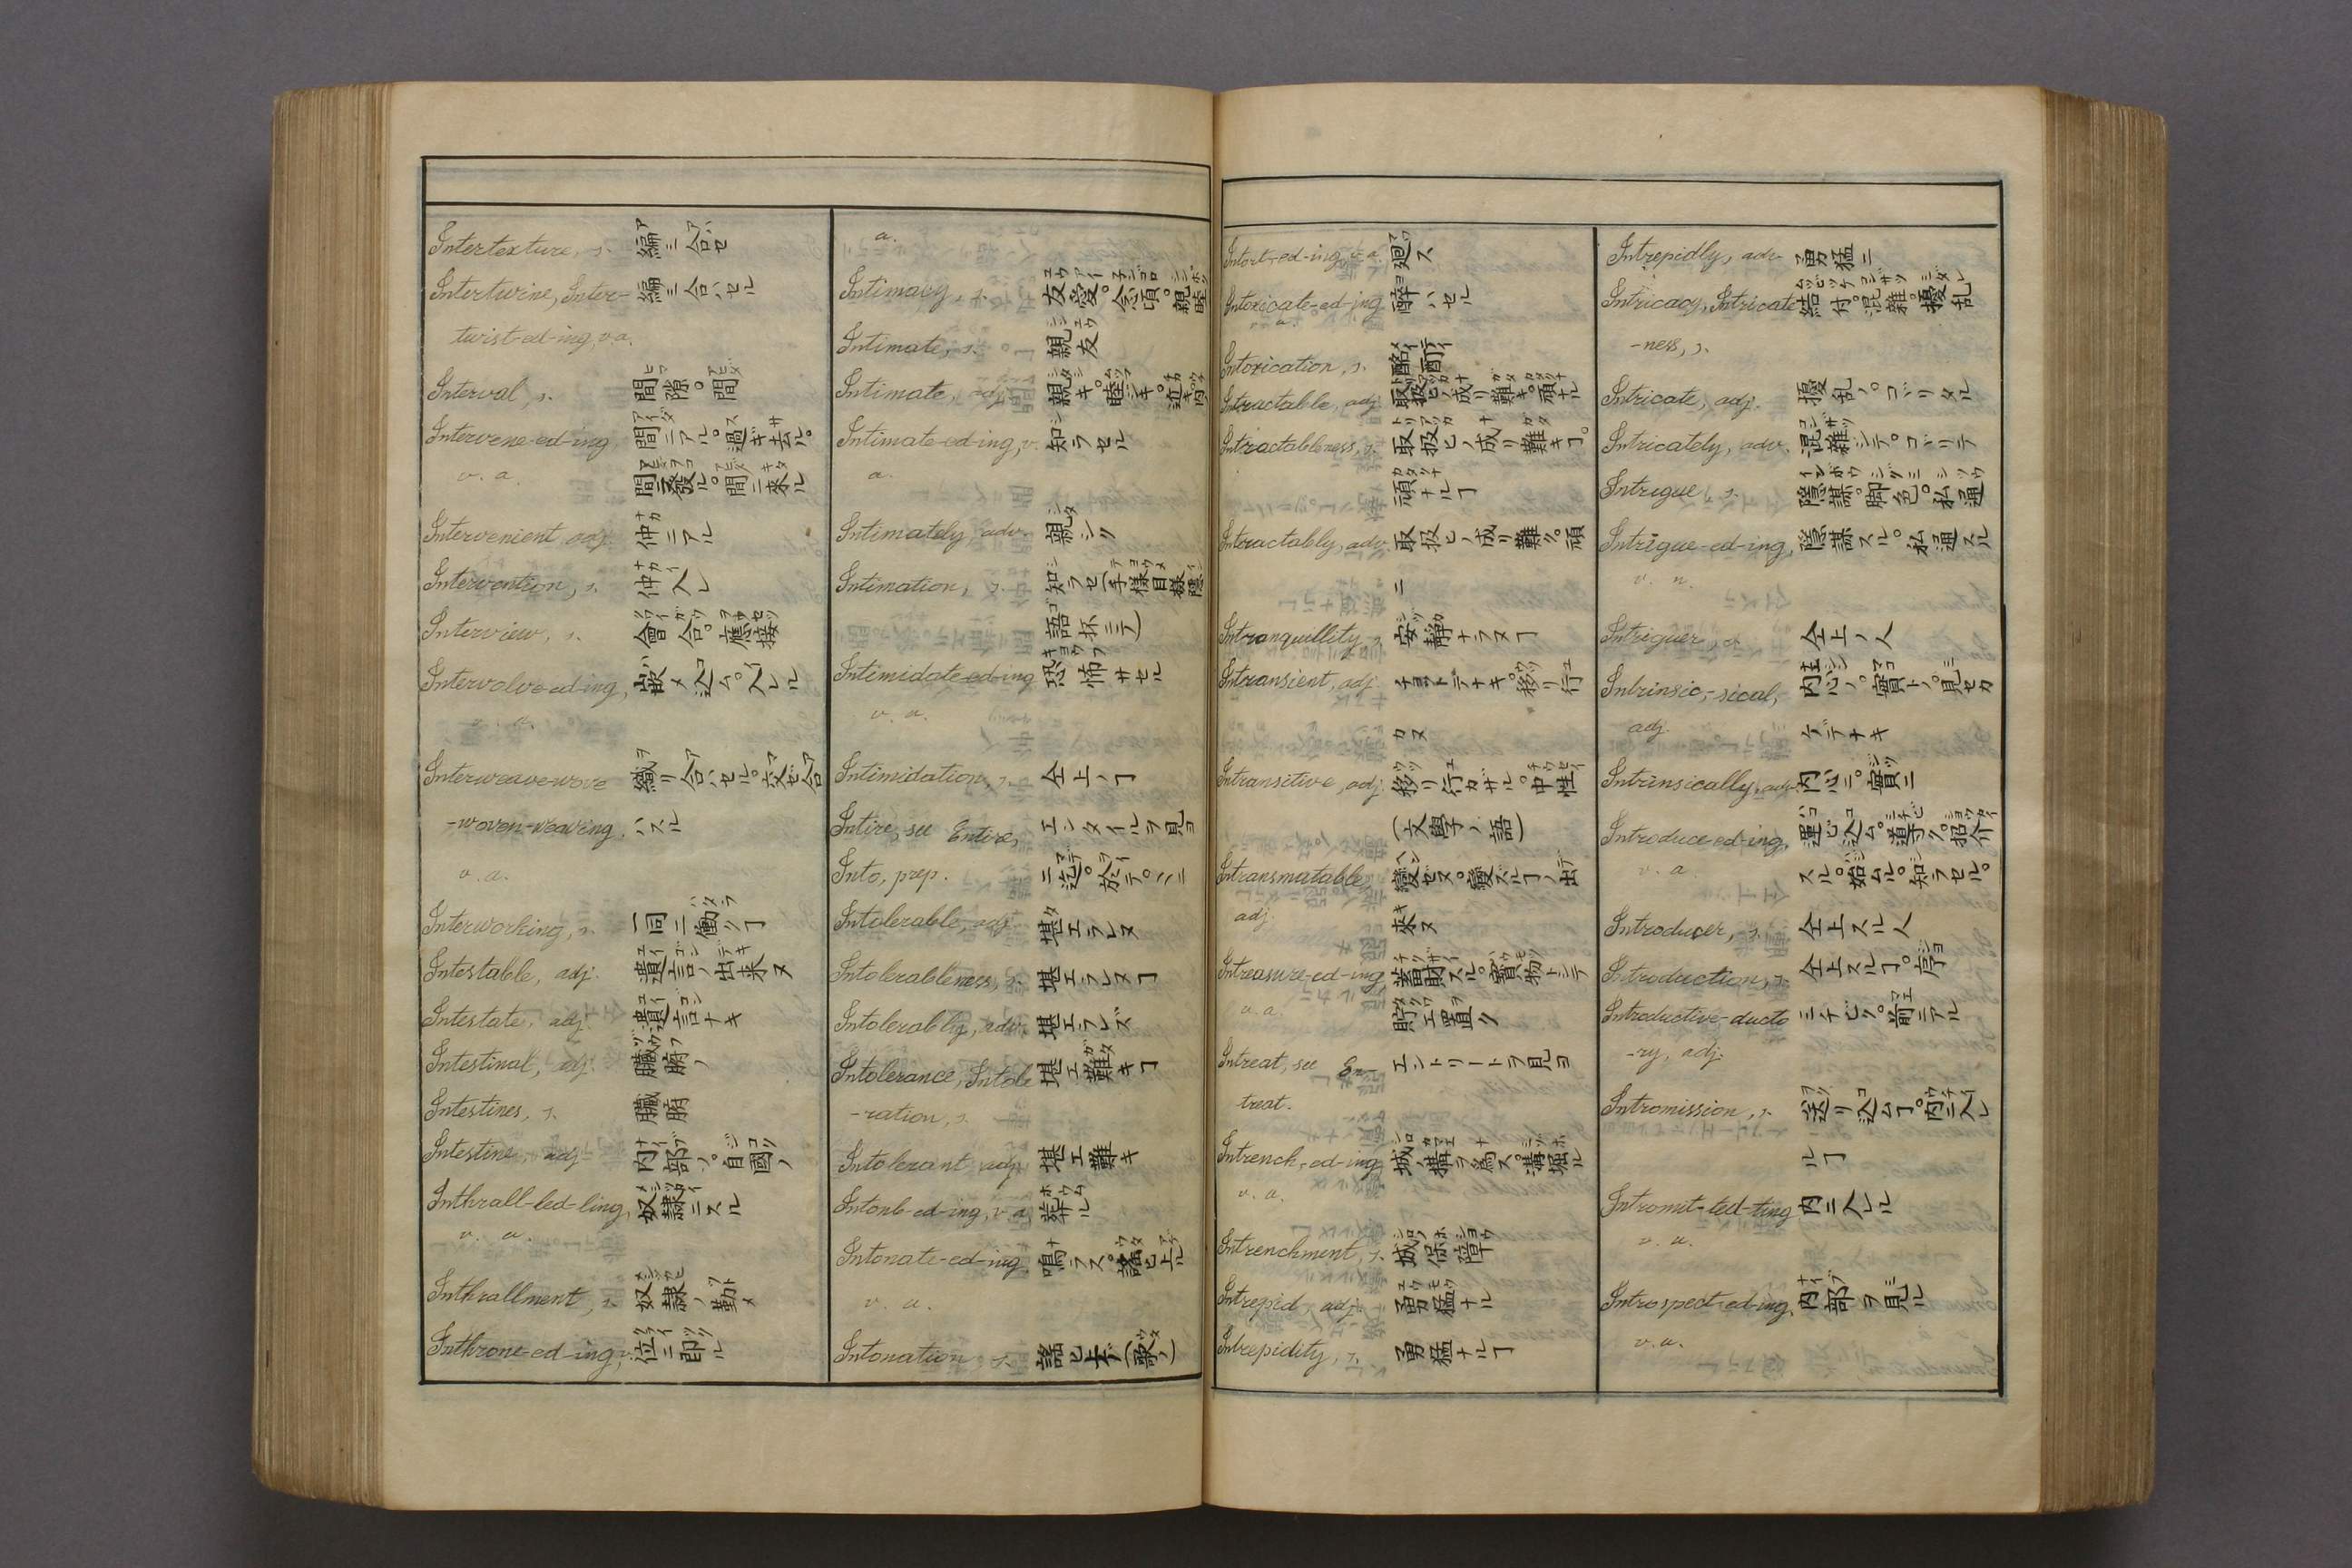 Intertexture, s. 編ミ合セ
Intertwine, Inter- 編ミ合ハセル
twist-ed-ing, v.a.
Interval, s. 間隙。間
Intervene-ed-ing 間ニアル。過ギ去ル。
v. a. 間ニ發ル。間ニ来ル
Intervenient, adj. 仲ニアル
Intervention, s. 仲入レ
Interview, s. 會合。應接
Intervolve-ed-ing, 嵌メ込ム。入レル
v. a.
Interweave-wove 織リ合ハセル。交ゼ合
-woven-weaving, ハスル
v. a.
Interworking, s. 一同ニ働クヿ
Intestable, adj. 遺言ノ出来ヌ
Intestate, adj. 遺言ナキ
Intestinal, adj. 臓腑ノ
Intestines, s. 臓腑
Intestine, adj. 内部ノ。自國ノ
Inthrall-led-ling, 奴隷ニスル
v. a.
Inthrallment, s. 奴隷ノ勤メ
Inthrone-ed-ing, 位ニ即ル
a.
Intimacy, s. 友愛。念頃。親睦
Intimate, s. 親友
Intimate, adj. 親キ。睦ジキ。近キ
Intimate-ed-ing, v. 知ラセル
a.
Intimately, adv. 親シク
Intimation, s. 知ラセ(手様目様隱
語抔ニテ)
Intimidate-ed-ing 恐怖サセル
v. a.
Intimidation, s. 仝上ノヿ
Intire, see Entire, エンタイルヲ見ヨ
Into, prep. ニ迄。於テ。
Intolerable, adj. 堪エラレヌ
Intolerableness, s. 堪エラレヌヿ
Intolerably, adv. 堪エラレズ
Intolerance, Intole 堪エ難キヿ
-ration, s.
Intolerant, adj. 堪エ難キ
Intomb-ed-ing, v. a. 葬ル
Intonate-ed-ing, 鳴ラス。謡ヒ上ル
v. a.
Intonation, s. 謡ヒ上ゲ(歌ノ)
Intort-ed-ing, v.a. 廻ス
Intoxicate-ed-ing 醉ハセル
v. a.
Intoxication, s. 酩酊
Intractable, adj. 取扱ヒノ成リ難キ。頑ナル
Intractableness, s. 取扱ヒノ成リ難キヿ。
頑ナルヿ
Intractably, adv. 取扱ヒノ成リ難ク。頑
ニ
Intranquillity, s. 安静ナラヌヿ
Intransient, adj. チヨットデナキ。移リ行
カヌ
Intransitive, adj. 移リ行カザル。中性
(文學ノ語)
Intransmutable, 變ゼヌ。變ズルヿノ出
adj. 来ヌ
Intreasure-ed-ing, 蓄財スル。寳物トシテ
v. a. 貯エ置ク
Intreat, see En- エントリートヲ見ヨ
treat.
Intrench-ed-ing, 城ノ搆ヲ為ス。溝堀ル
v. a.
Intrenchment, s. 城ノ保障
Intrepid, adj. 勇猛ナル
Intrepidity, s. 勇猛ナルヿ
Intrepidly, adv. 勇猛ニ
Intricacy, Intricate 結付。混雜。擾乱
-ness, s.
Intricate, adj. 擾乱ノ。コヾリタル
Intricately, adv. 混雜シテ。コヾリテ
Intrigue, s. 隱謀。脚色。私通
Intrigue-ed-ing, 隱謀スル。私通スル
v. n.
Intriguer, s. 仝上ノ人
Intrinsic,-sical, 内心ノ。實トノ。見セカ
adj. ケデナキ
Intrinsically, adv. 内心ニ。實ニ
Introduce-ed-ing, 運ビ込ム。導ク。招介
v. a. スル。始ムル。知ラセル。
Introducer, s. 仝上スル人
Introduction, s. 仝上スルヿ。序
Introductive-ducto ミチビク。前ニアル
-ry, adj.
Intromission, s. 送リ込ムヿ。内ニ入レ
ルヿ
Intromit-ted-ting 内ニ入レル
v. a.
Introspect-ed-ing, 内部ヲ見ル
v. a.